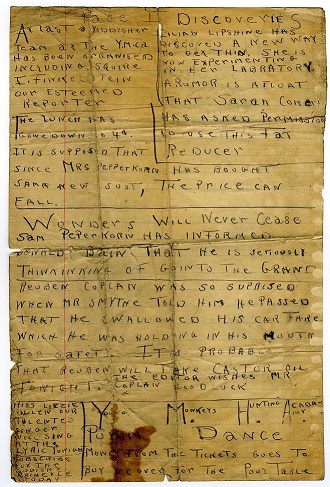 Page II Discoveries
At last a Yiddisher
Team at the YMCA
has been organised
including Squire
I. Finkelstein
our esteered
reporter
The lunch has
gowedown to 4¢.
It is supposed that
since Mrs Pepperkorn
Sam a new suit,
fall.
Lilian Lipshine has
discoved a new way
to get thin. She is
now experimenting
in her labratory.
A rumor is afloat
that Sarah Cohen
has asked permission
to use this fat
reducer
has bought
the price can
Wonders Will Never Cease
Sam Peperkorn has informed
Donald Bain that he is seriously
thinkinking of goin to the Grand
Reuben Coplan was so suprised
when Mr Smythe told him he passed
that he wallowed his car fare
which he was holding in his mouth
for safety. It is probable
that Reuben will take castor oil
tonight. The editor wishes Mr.
Coplan good luck
Miss Lizzie
Mullen our
talented
singer
will sing
at the
Lyric tonight
Subscribe
for the
Yiddish
Principle
today
Young Monkeys Hunting Academy
Purim Dance
Money from the tickets goes to
buy a cover for the Pool Table